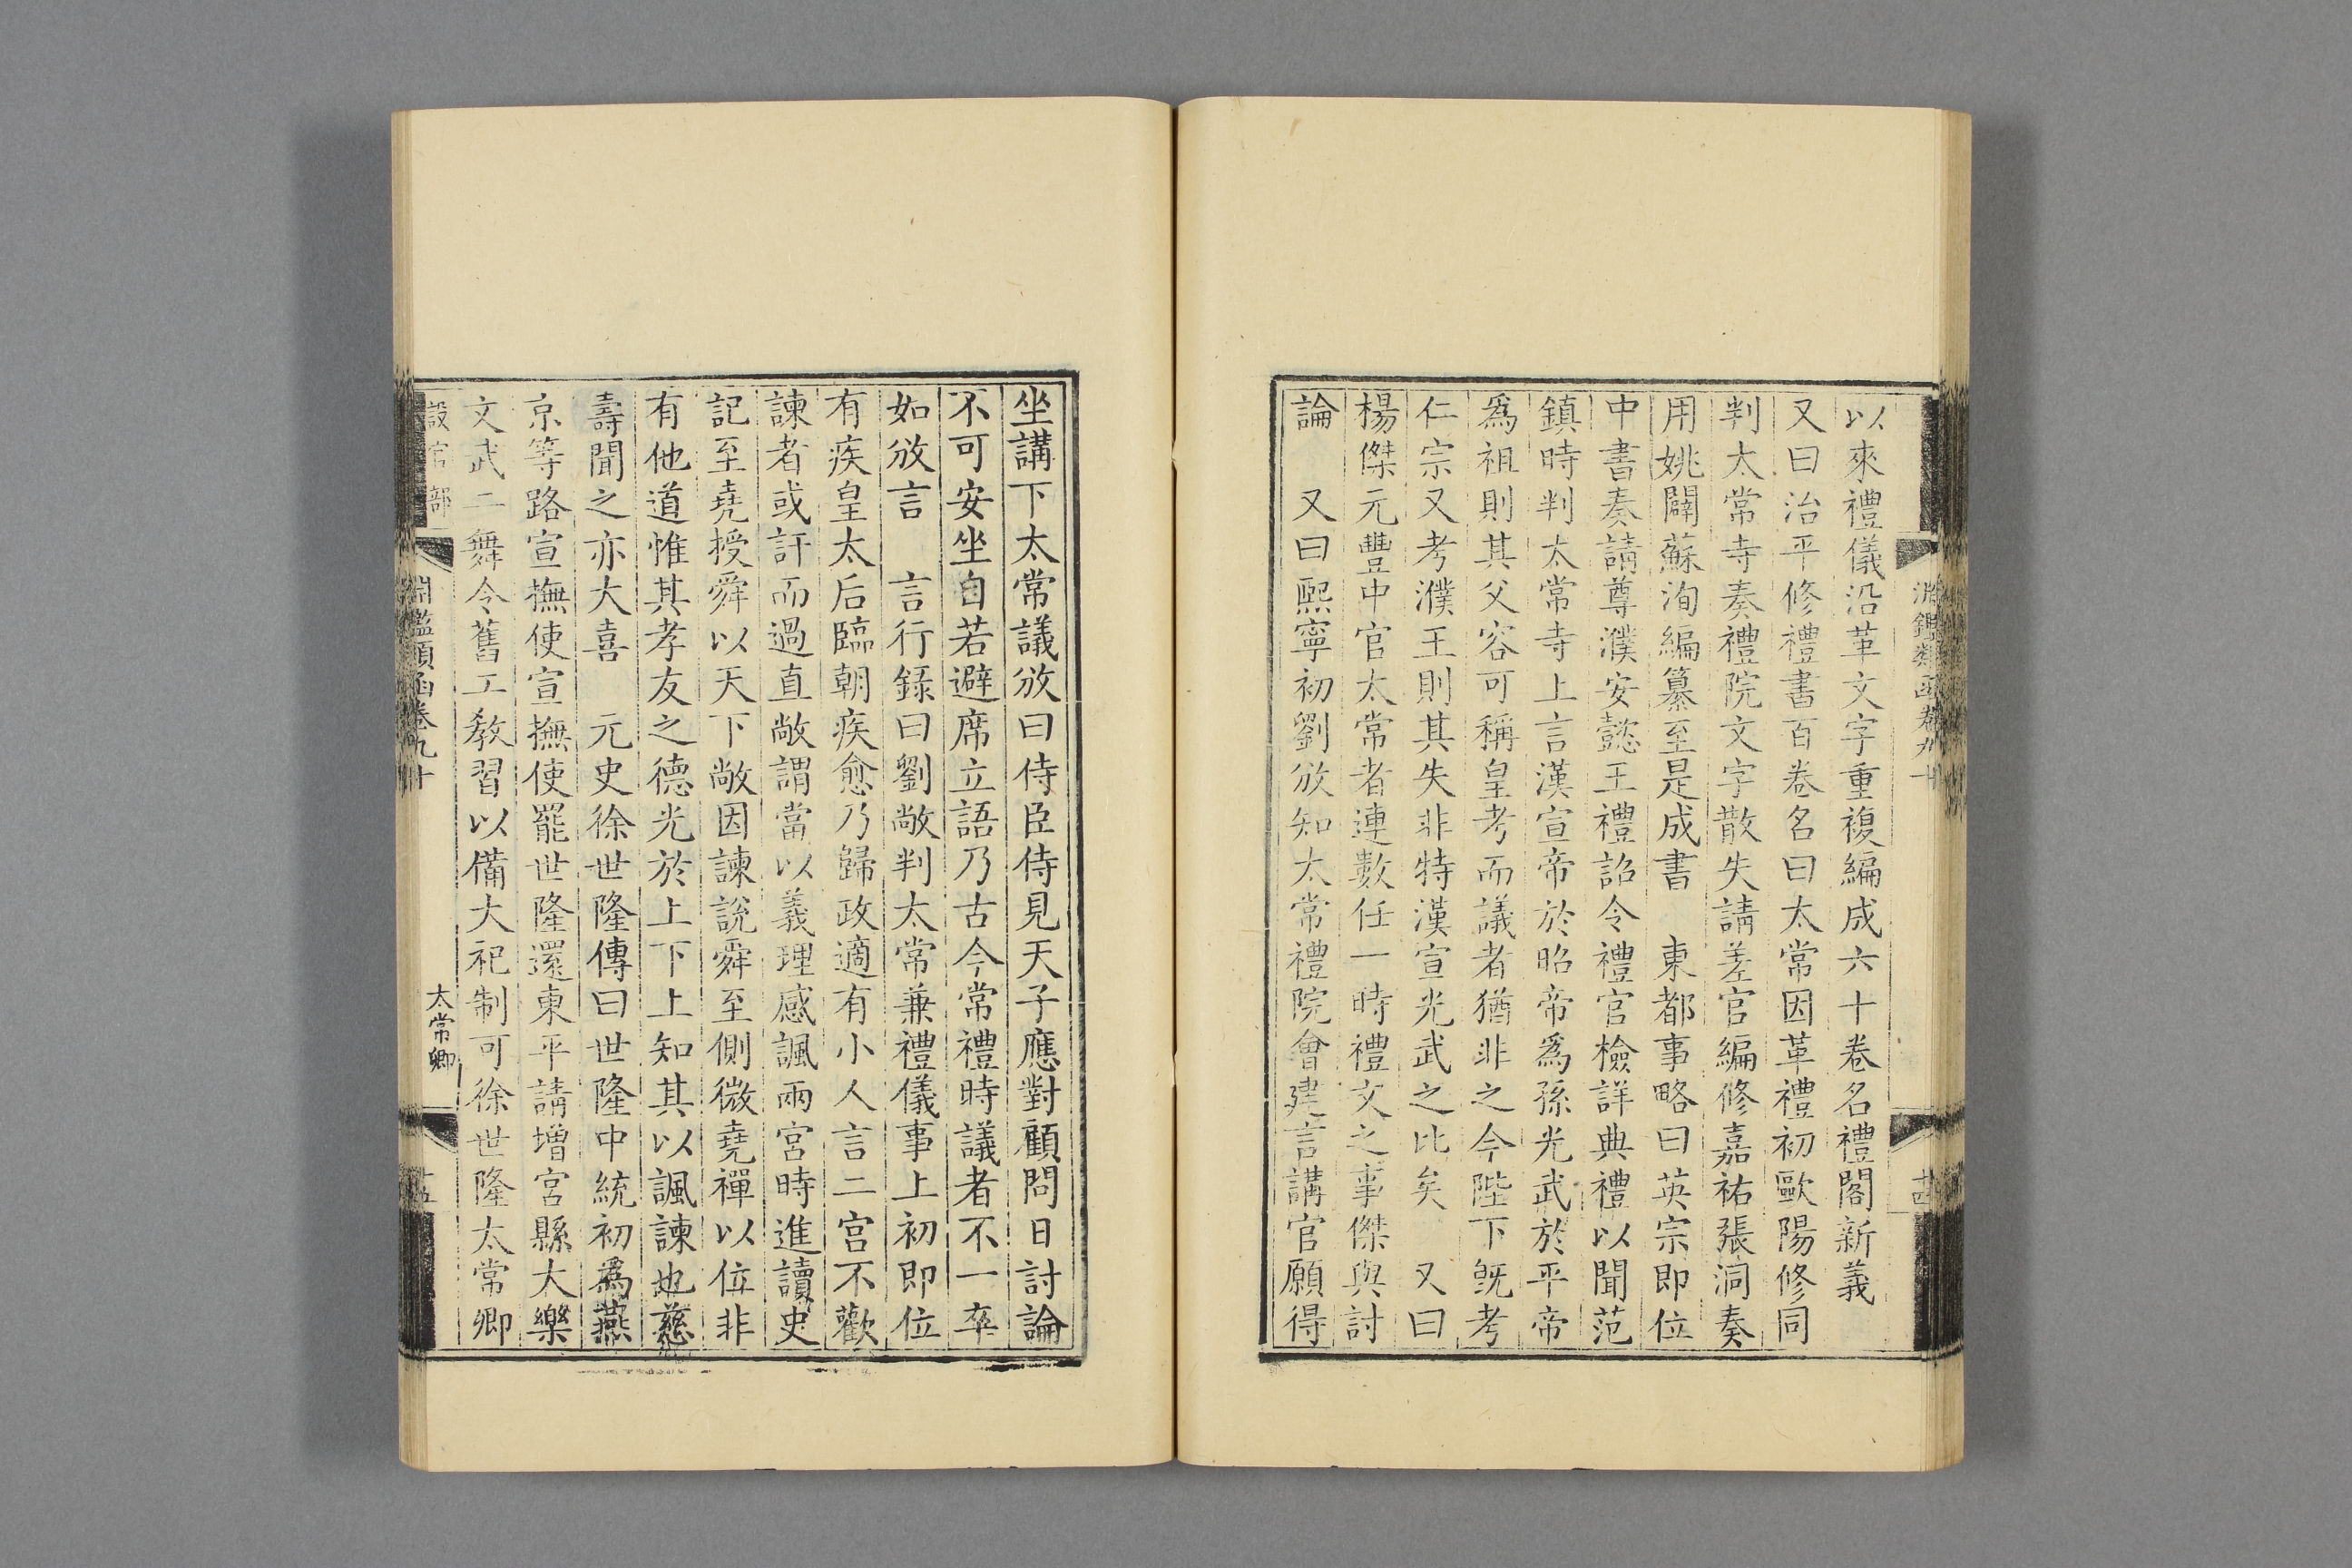 淵鑑類函卷九十
十四
以來禮儀沿革文字重複編成六十卷名禮閣新義
又曰治平修禮書百卷名曰太常因革禮初歐陽修同
判太常寺奏禮院文字散失請差官編修嘉祐張洞奏
用姚闢蘇洵編纂至是成書　東都事略曰英宗即位
中書奏請尊濮安懿王禮詔令禮官檢詳典禮以聞范
鎮時判太常寺上言漢宣帝於昭帝爲孫光武於平帝
爲祖則其父容可稱皇考而議者猶非之今陛下旣考
仁宗又考濮王則其失非特漢宣光武之比矣　又曰
楊傑元豐中官太常者連數任一時禮文之事傑與討
論　又曰熙寧初劉攽知太常禮院會建言講官願得
坐講下太常議攽曰侍臣侍見天子應對顧問日討論
不可安坐自若避席立語乃古今常禮時議者不一卒
如攽言　言行錄曰劉敞判太常兼禮儀事上初即位
有疾皇太后臨朝疾愈乃歸政適有小人言二宮不歡
諫者或訐而過直敞謂當以義理感諷兩宮時進讀史
記至堯授舜以天下敞因諫說舜至側微堯禪以位非
有他道惟其孝友之德光於上下上知其以諷諫也慈
壽聞之亦大喜　元史徐世隆傳曰世隆中統初爲燕
京等路宣撫使宣撫使罷世隆還東平請增宮縣大樂
文武二舞令舊工教習以備大祀制可徐世隆太常卿
設官部
淵鑑類函卷九十
太常卿
十五